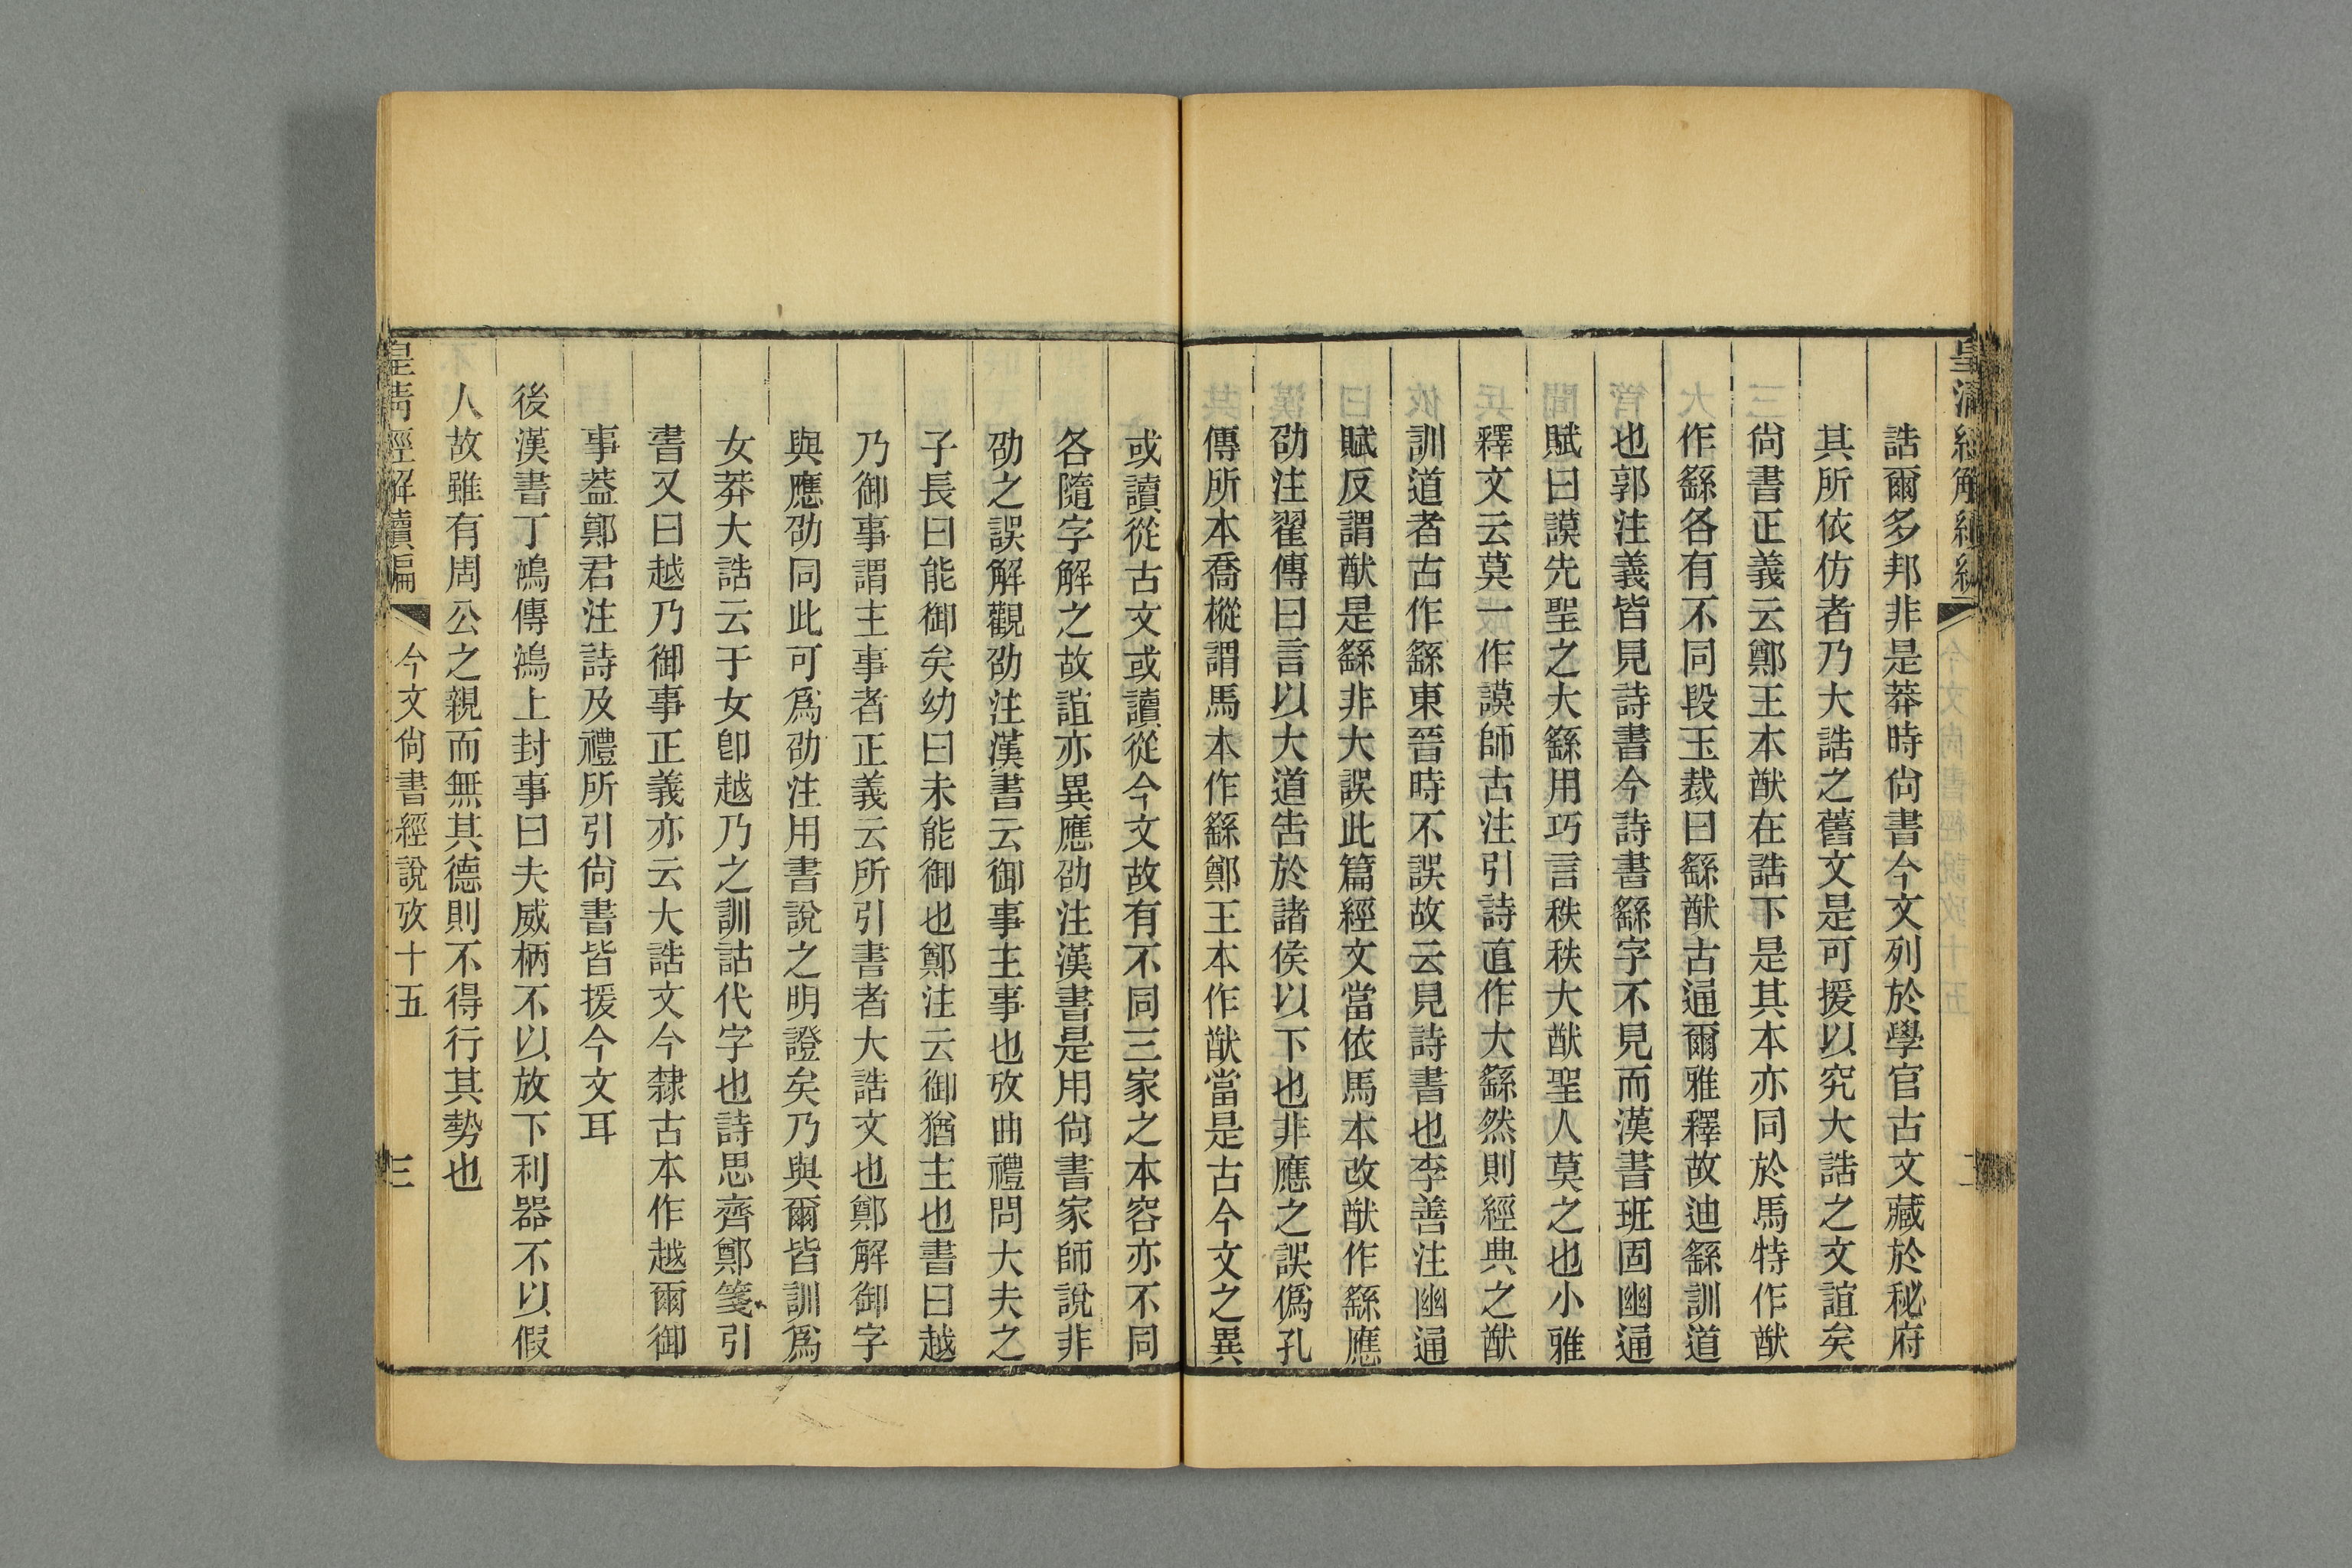 誥爾多邦非是莽時尙書今文列於學官古文藏於秘府
其所依仿者乃大誥之舊文是可援以究大誥之文誼矣
尙書正義云鄭王本猷在誥下是其本亦同於馬特作猷
作繇各有不同段玉裁曰繇猷古通爾雅釋故迪繇訓道
也郭注義皆見詩書今詩書繇字不見而漢書班固幽通
賦曰謨先聖之大繇用巧言秩秩大猷聖人莫之也小雅
釋文云莫一作謨師古注引詩直作大繇然則經典之猷
訓道者古作繇東晉時不誤故云見詩書也李善注幽通
賦反謂猷是繇非大誤此篇經文當依馬本改猷作繇應
劭注翟傳曰言以大道告於諸侯以下也非應之誤僞孔
傳所本喬樅謂馬本作繇鄭王本作猷當是古今文之異
或讀從古文或讀從今文故有不同三家之本容亦不同
各隨字解之故誼亦異應劭注漢書是用尙書家師說非
劭之誤解觀劭注漢書云御事主事也攷曲禮問大夫之
子長曰能御矣幼曰未能御也鄭注云御猶主也書曰越
乃御事謂主事者正義云所引書者大誥文也鄭解御字
與應劭同此可爲劭注用書說之明證矣乃與爾皆訓爲
女莽大誥云于女卽越乃之訓詁代字也詩思齊鄭箋引
書又曰越乃御事正義亦云大誥文今隸古本作越爾御
事葢鄭君注詩及禮所引尙書皆援今文耳
後漢書丁鴻傳鴻上封事曰夫威柄不以放下利器不以假
人故雖有周公之親而無其德則不得行其勢也
皇清經解續編
今文尙書經說攷十五
三